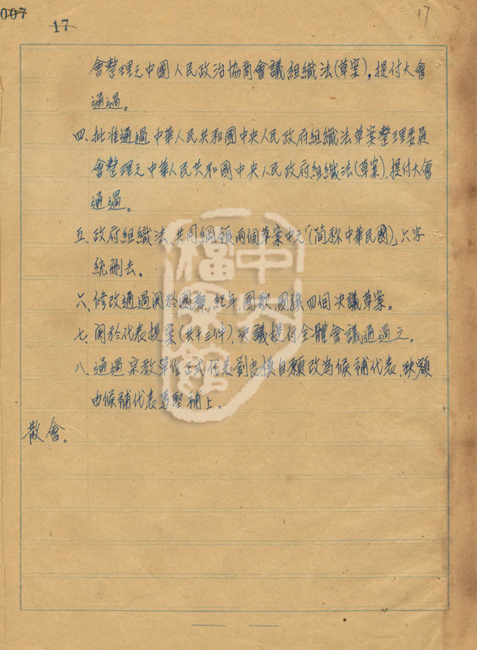 007
17
17
會整理之中國人民政治協商會議組織法(草案),提付大會
通過。
四、批准通過中華人民共和國中央人民政府組織法草案整理委員
會整理之中華人民共和國中央人民政府組織法(草案),提付大會
通過。
五、政府組織法、共同綱領兩個草案中之「(简称中華民國)」六字
統刪去。
六、修改通過関於國都,紀年,國歌,國旗四個决議草案。
七、関於代表提案(共十三件),决議提付全體會議通過之。
八、通過宗教單位正式代表劉良模自願改為候補代表,缺額
由候補代表 補上。
散會。
中央檔案館